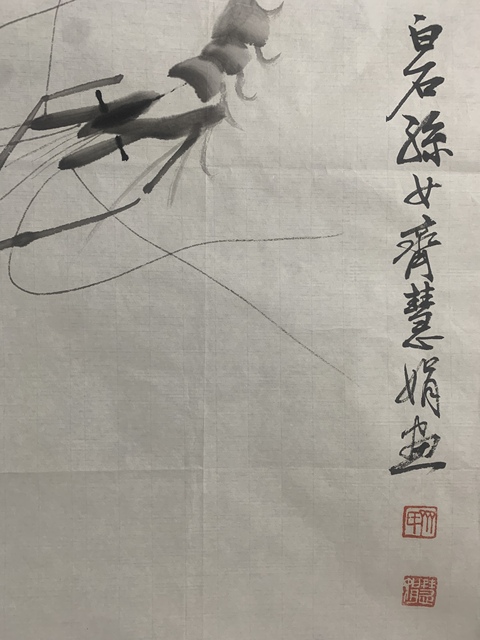 白石孫女齊慧娟畫